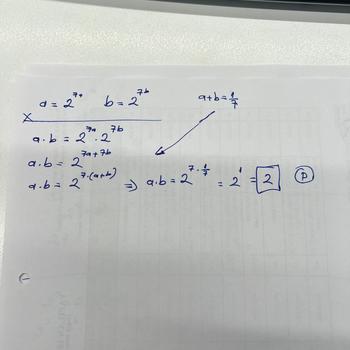 a = 2^7a b = 2^7b a+b = 1/7
x
a.b = 2^7a . 2^7b
a.b = 2^7a+7b
a.b = 2^7.(a+b) => a.b = 2^7.1/7 = 2^1 = 2 D